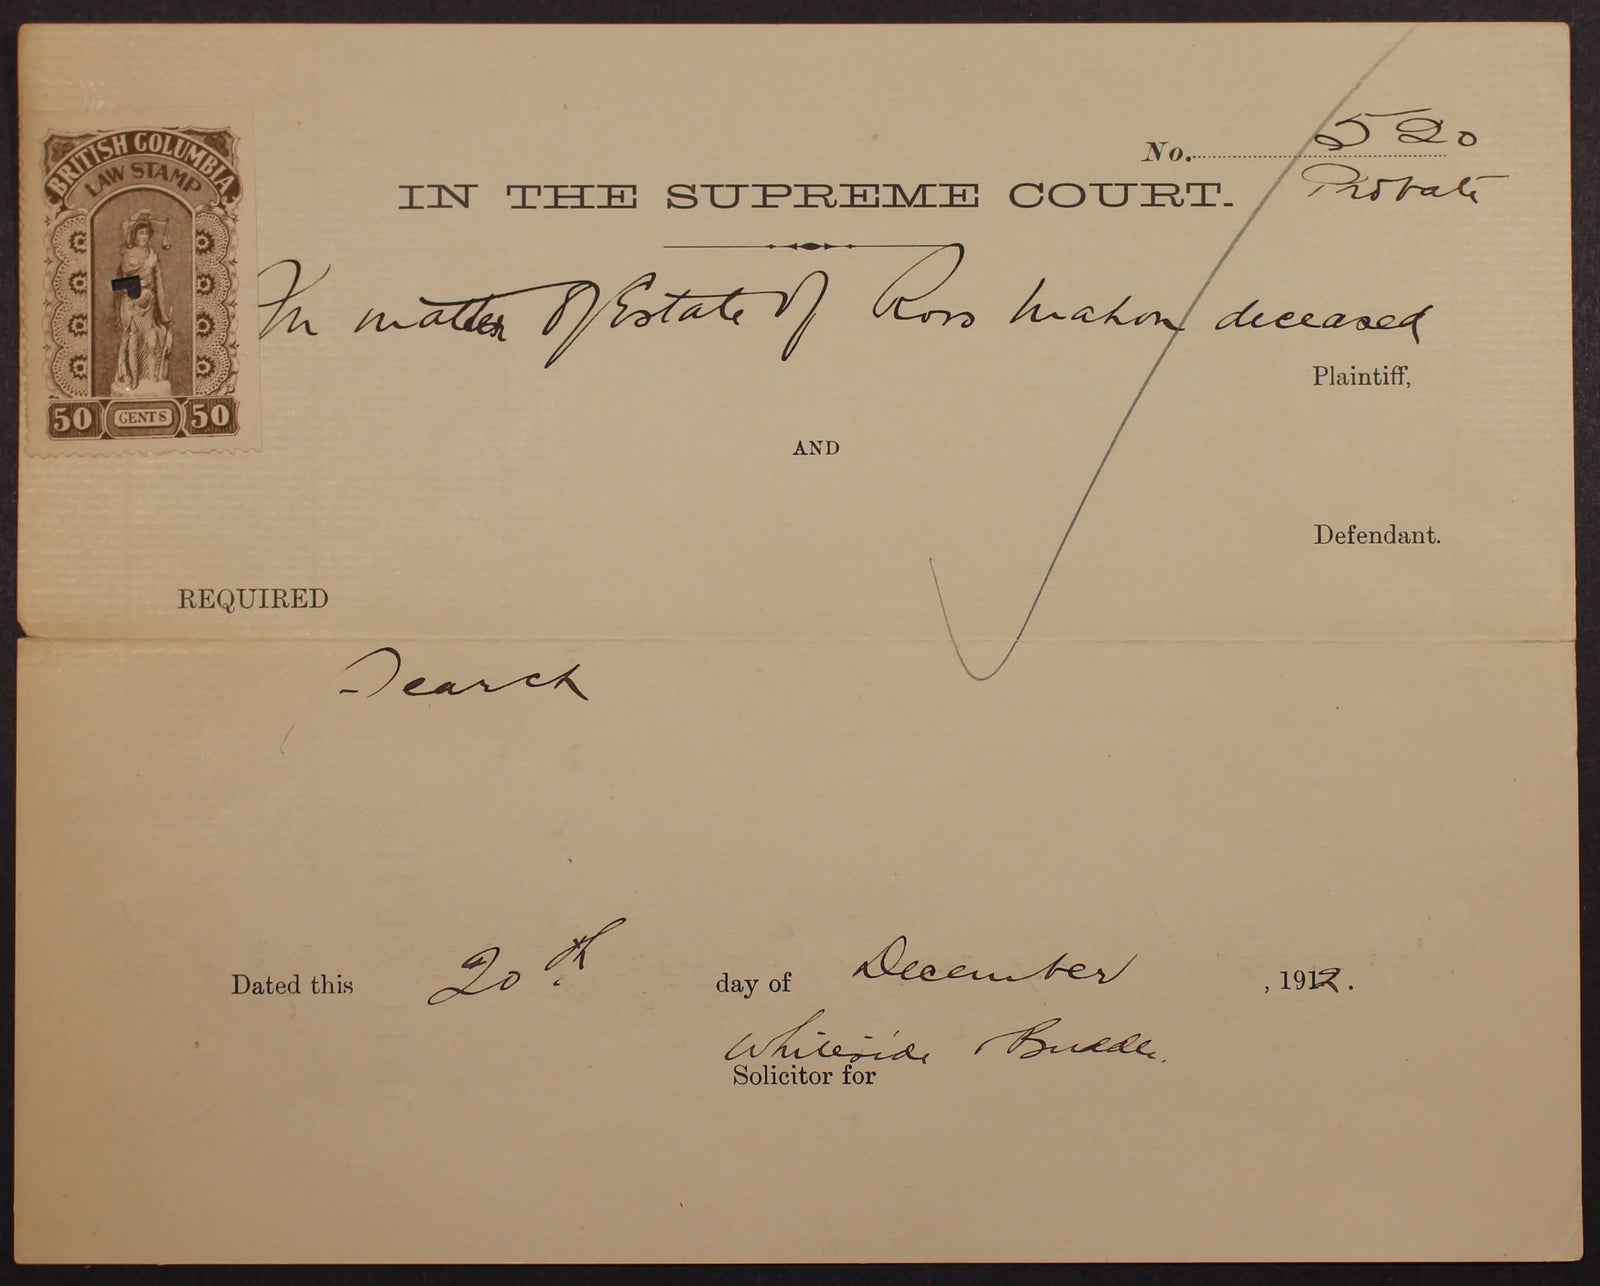 BRITISH COLUMBIA
LAW STAMP
50 CENTS 50
No. 520
Probate
IN THE SUPREME COURT.
In matter of Estate of Ross Mahon deceased
Plaintiff,
AND
Defendant.
REQUIRED
Search
Dated this 20th day of December, 1912.
Whiteside
Solicitor for